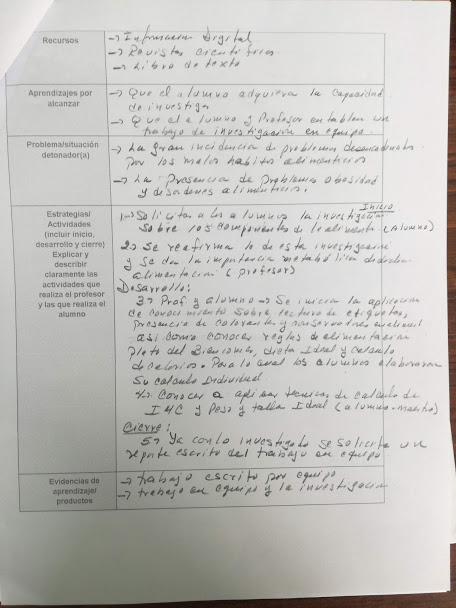 Recursos
→ Información Digital
→ Revistas cientificas
→ Libro de texto
Aprendizajes por
alcanzar
→ Que el alumno adquiera la capacidad
de investigar
→ Que el alumno y Profesor entablen un
trabajo de investigación en equipo.
Problema/situación
detonador(a)
→ La gran incidencia de problemas desencadenados
por los malos habitos alimenticios
→ La Presencia de problemas obesidad
y desordenes alimenticios.
Estrategias/
Actividades
(incluir inicio,
desarrollo y cierre)
Explicar y
describir
claramente las
actividades que
realiza el profesor
y las que realiza el
alumno
Inicio
1.- Solicitar a los alumnos la investigación
sobre los componentes de le alimento (Alumno)
2.- Se reafirma lo de esta investigación
y se da la importancia metabólica de
alimentación (profesor)
Desarrollo:
3.- Prof y alumno → Se inicia la aplicación
de conocimiento sobre lectura de etiquetas,
presencia de colorantes y conservadores
asi como conocer reglas de alimentación
Plato del Bien comer, dieta Ideal y calculo
de calorias. Para lo cual los alumnos elaboraran
su calculo Individual
4.- Conocer a aplicar tecnicas de calculo de
IMC y Peso y talla Ideal (alumno-maestro)
Cierre:
5.- Ya con lo investigado se solicita un
reporte escrito del trabajo en equipo
Evidencias de
aprendizaje/
productos
→ trabajo escrito por equipo
→ trabajo en equipo y la investigación